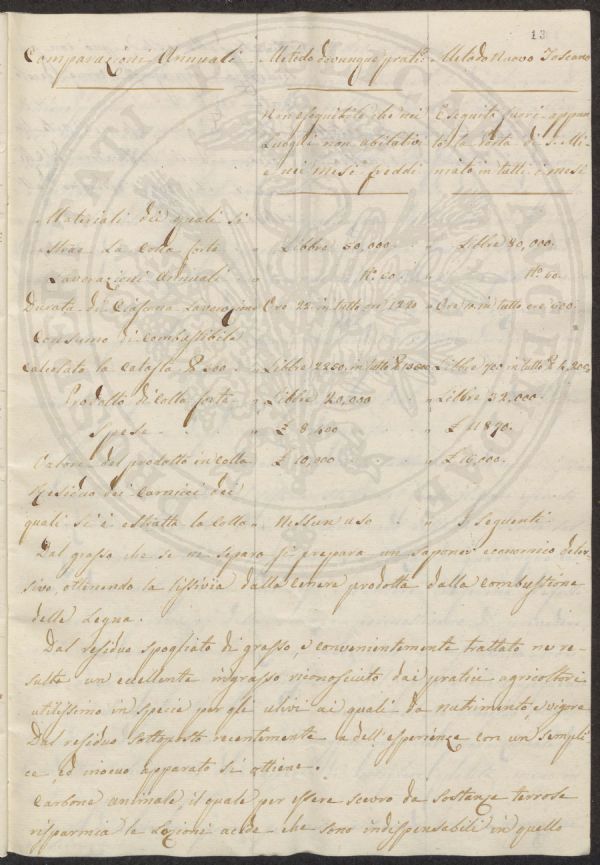 13
Comparazioni Annuali Metodo dovunque prat.° Metodo Nuovo Toscano
Non eseguibile che nei Eseguito fuori appun
Luoghi non abitativi to la Porta di S. Mi
e nei mesi freddi niato in tutti i mesi
Materiali dei quali si
strae la Colla forte " Libbre 50,000. " Libbre 80,000.
Lavorazioni Annuali " N.° 50. " N.° 50.
Durata di Ciascuna Lavorazione Ore 25 in tutto ore 1220 " Ore 10 in tutto ore 500.
Consumo di Combustibile
Calcolato la Catasta £ 200. " Libbre 2200. in tutto Libbre 700 in tutto
Prodotto di Colla forte " Libbre 20,000 " Libbre 32,000.
Spese " £ 8,400 " £ 11890.
Valore del prodotto in Colla £ 10,000 " £ 16,000.
Residuo dei Carnicci dei
quali si è estratta la Colla " Nessun uso " I seguenti
Dal grasso che se ne separa si prepara un sapone economico deter
sivo, ottenendo la lissivia dalla cenere prodotta dalla combustione
delle Legna.
Dal residuo spogliato di grasso, e convenientemente trattato ne re-
sulta un eccellente ingrasso riconosciuto dai pratici agricoltori
utilissimo in specie per gli ulivi ai quali da nutrimento, e vigore
Dal residuo sottoposto recentemente a dell'esperienze con un sempli
ce, ed inocuo apparato si ottiene.
Carbone animale, il quale per essere scevro da sostanze terrose
risparmia le Lozioni acide che sono indispensabili in quello